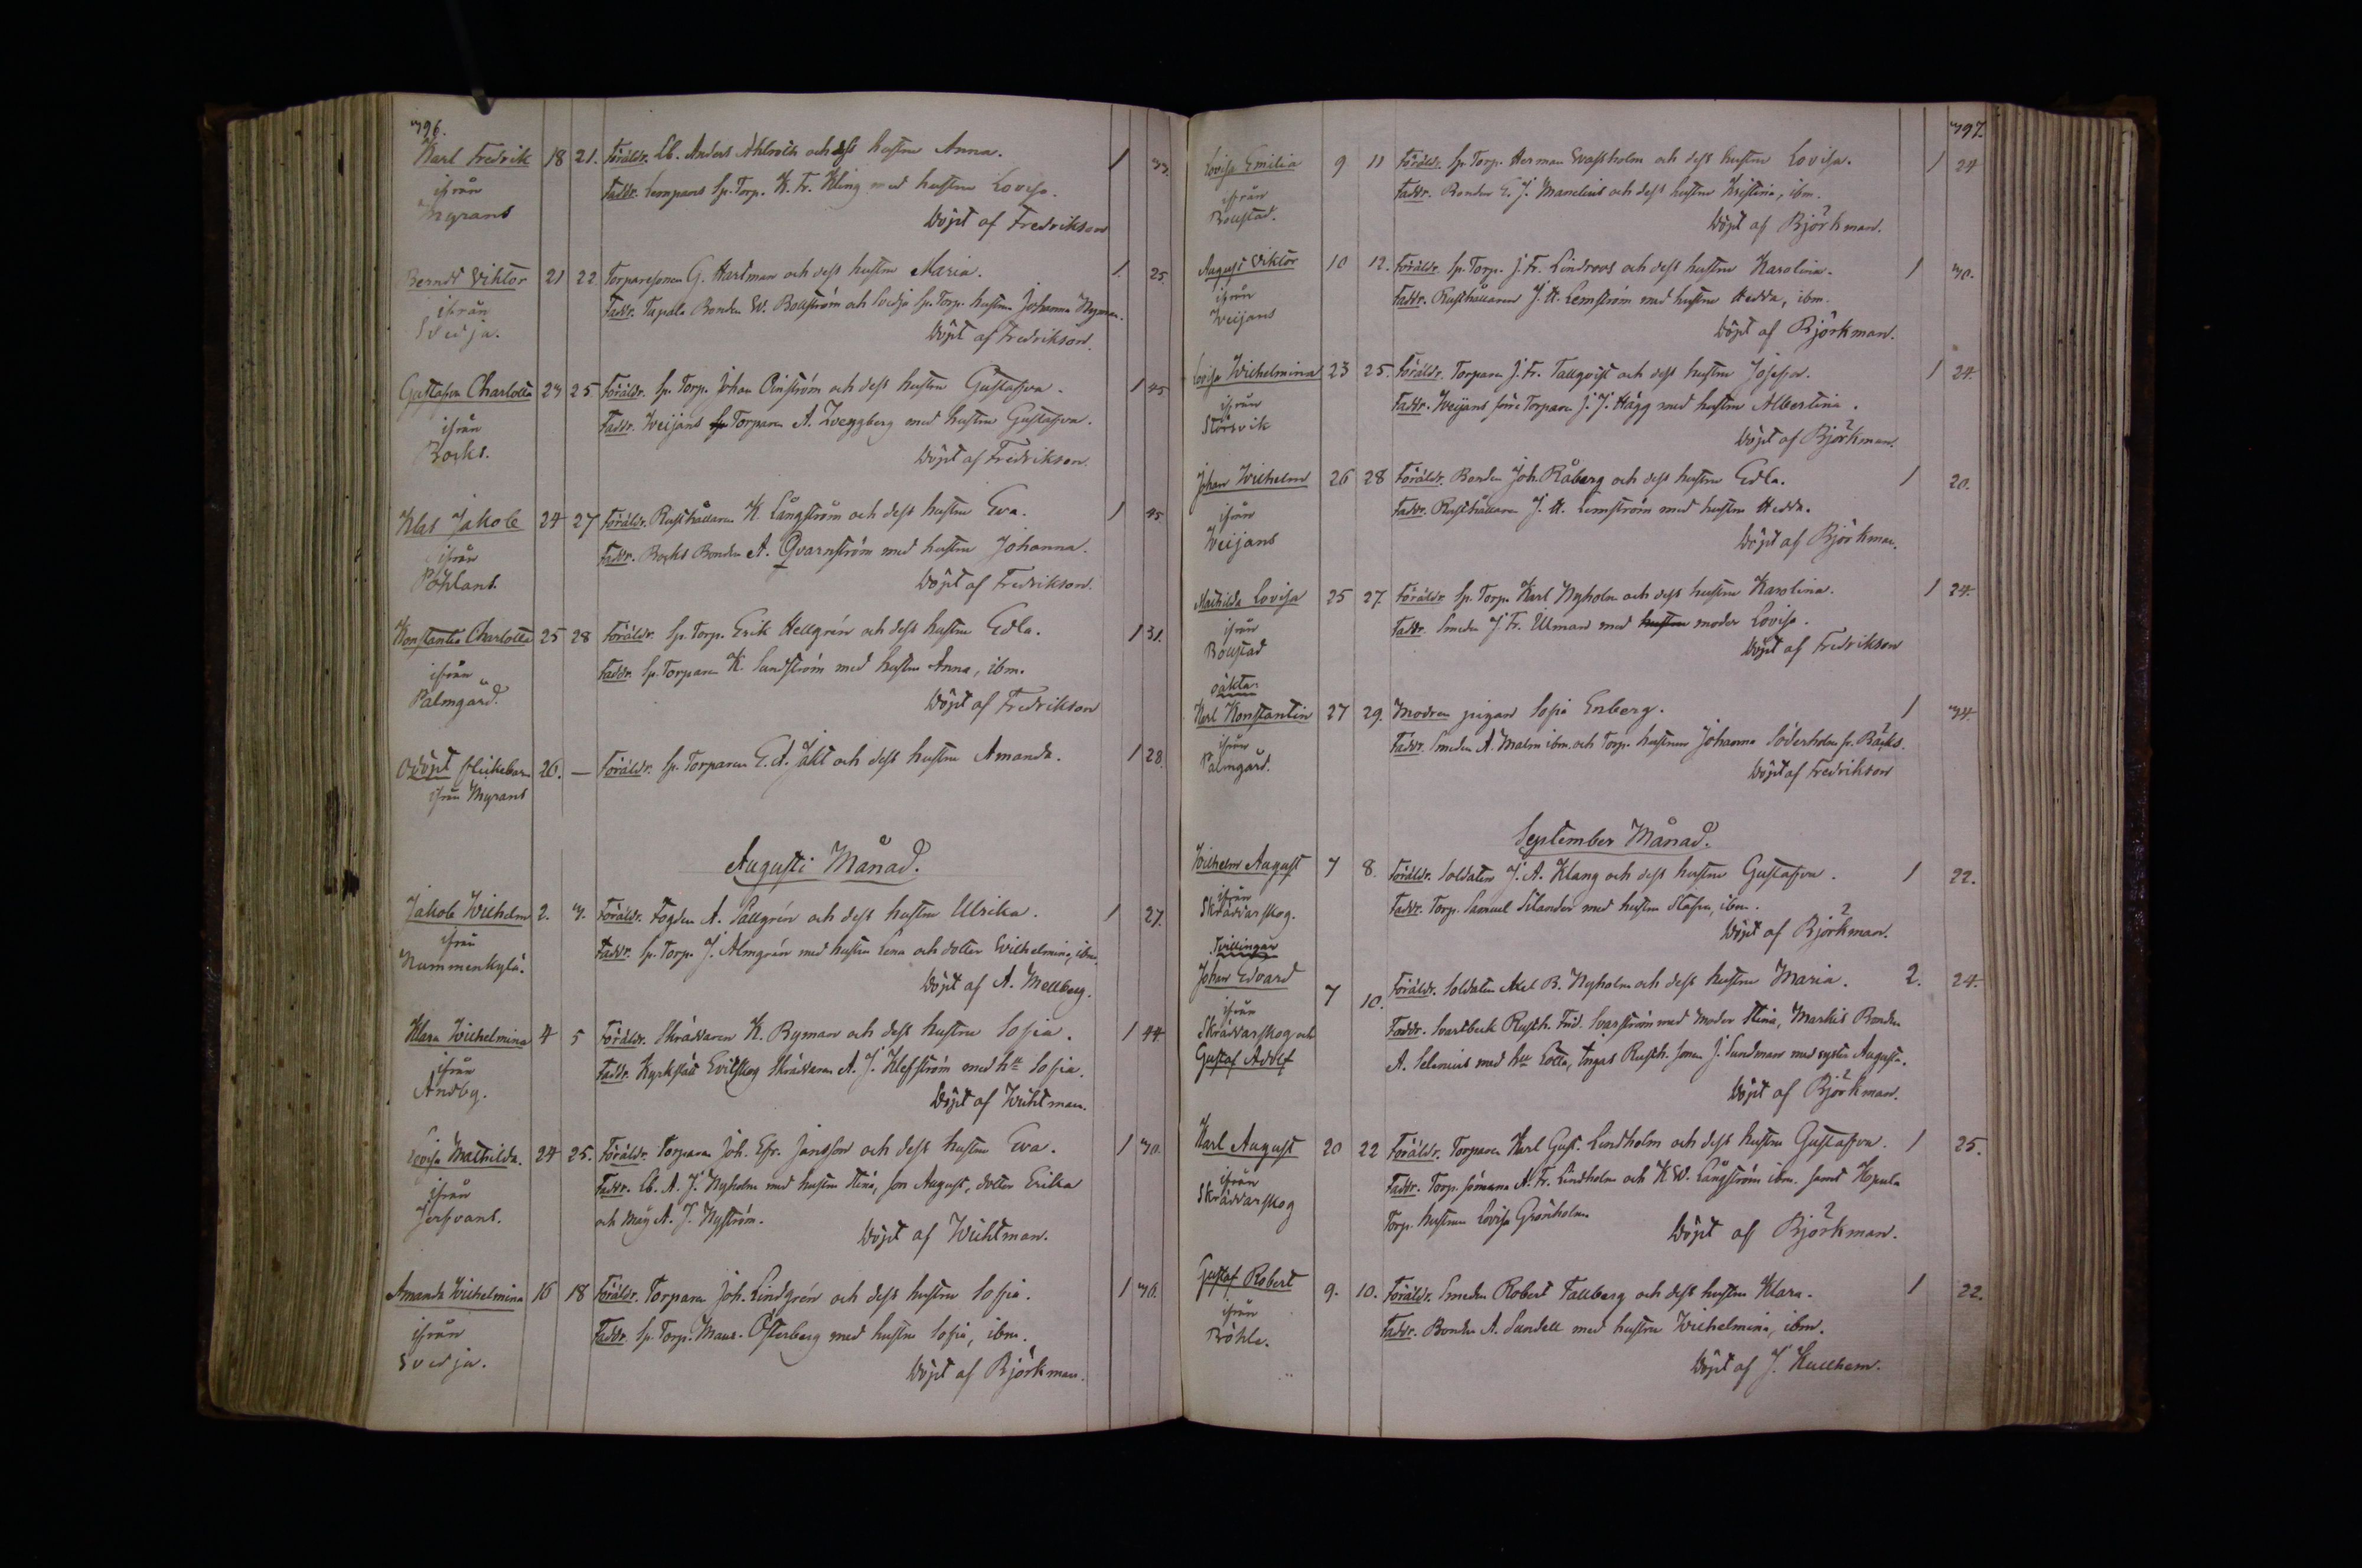 396.
Karl Fredrik 18 21. Föräldr. Lb. Anders Ahlroth och dess hustru Anna. 1 33.
ifrån Faddr. Lempans Sp. Torp. K. Fr. Kling med hustru Lovisa.
Myrans Döpt af Fredrikson
Berndt Viktor 21 22 Torparesonen G. Hartman och dess hustru Maria. 1. 25.
ifrån Faddr. Tapala Bonden W. Bollström och Svedja Sp. Torp. hustrun Johanna Nyman.
Svedja. Döpt af Fredrikson.
Gustafva Charlotta 23 25 Föräldr. Sp. Torp. Johan Öinström och dess hustru Gustafva. 1 45
ifrån Faddr. Weijans Torparen A. Zweygberg med hustru Gustafva.
Bocks. Döpt af Fredrikson.
Klas Jakob 24 27 Föräldr. Rusthållaren K. Långström och dess hustru Eva. 1 45
ifrån Faddr. Bocks Bonden A. Qvarnström med hustru Johanna.
Pöhlans. Döpt af Fredrikson.
Konstantia Charlotta 25 28 Föräldr. Sp. Torp. Erik Hellgrén och dess hustru Edla. 1 31.
ifrån Faddr. Sp. Torparen K. Sundström med hustru Anna, ibm.
Palmgård. Döpt af Fredrikson
Odöpt flickebarn 26. — Föräldr. Sp. Torparen E. A. Jakt och dess hustru Amanda. 1 28.
ifrån Myrans
Augusti Månad.
Jakob Wilhelm 2. 3. Föräldr. Fogden A. Sällgrén och dess hustru Ulrika. 1 27.
ifrån Faddr. Sp. Torp. J. Almgrén med hustru Lena och dotter Wilhelmina, ibm.
Nummenkylä. Döpt af A. Mellberg.
Klara Wilhelmina 4 5 Föräldr. Skräddaren K. Ryman och dess hustru Sofia. 1 44
ifrån Faddr. Kyrkslätt Evitskog Skräddaren A. J. Klefström med hu Sofia.
Andby. Döpt af Wichtman.
Lovisa Mathilda. 24 25. Föräldr. Torparen Joh. Efr. Jansson och dess hustru Eva. 1 30.
ifrån Faddr. Lb. A. J. Nyholm med hustru Stina, son August, dotter Erika
Jerfvans. och Måg A. J. Nyström.
Döpt af Wichtman.
Amanda Wilhelmina 16 18 Föräldr. Torparen Joh. Lindgrén och dess hustru Sofia. 1 36.
ifrån Faddr. Sp. Torp. Maur. Österberg med hustru Sofia, ibm.
Svedja. Döpt af Björkman.
397.
Lovisa Emilia 9 11 Föräldr. Sp. Torp. Herman Wassholm och dess hustru Lovisa. 1 24
ifrån Faddr. Bonden E. J. Manelius och dess hustru Kristina, ibm.
Bollstad. Döpt af Björkman.
August Viktor 10 12. Föräldr. Sp. Torp. J. Fr. Lindroos och dess hustru Karolina. 1 30.
ifrån Faddr. Rusthållaren J. H. Lemström med hustru Hedda, ibm.
Weijans Döpt af Björkman.
Lovisa Wilhelmina 23 25. Föräldr. Torparen J. Fr. Tallqvist och dess hustru Josefa. 1 24.
ifrån Faddr. Weijans förre Torparen J. J. Hägg med hustru Albertina.
Störsvik Döpt af Björkman.
Johan Wilhelm 26 28 Föräldr. Bonden Joh. Råberg och dess hustru Edla. 1 20.
ifrån Faddr. Rusthållaren J. H. Lemström med hustru Hedda.
Weijans Döpt af Björkman.
Mathilda Lovisa 25 27. Föräldr. Sp. Torp. Karl Nyholm och dess hustru Karolina. 1 24.
ifrån Faddr. Smeden J. Fr. Ulman med hustru moder Lovisa.
Bollstad Döpt af Fredrikson
oäkta
Karl Konstantin 27 29. Modren pigan Sofia Enberg. 1 34.
ifrån Faddr. Smeden A. Malm ibm. och Torp. hustrun Johanna Söderholm fr. Bäcks.
Palmgård. Döpt af Fredrikson
September Månad.
Wilhelm August 7 8. Föräldr. Soldaten J. A. Klang och dess hustru Gustafva. 1 22.
ifrån Faddr. Torp. Samuel Silander med hustru Stafva, ibm.
Skräddarskog. Döpt af Björkman.
Tvillingar
Johan Edvard 7 10. Föräldr. Soldaten Axel B. Nyholm och dess hustru Maria. 2. 24.
ifrån Faddr. Svartbeck Rusth. Frid. Svarström med moder Stina, Markis Bonden
Skräddarskog och A. Selenius med hu Lotta, Ingas Rusth. sonen J. Sundman med syster Augusta.
Gustaf Adolf Döpt af Björkman.
Karl August 20 22 Föräldr. Torparen Karl Gust. Lindholm och dess hustru Gustafva. 1 25.
ifrån Faddr. Torp. sönerna A. Fr. Lindholm och K. W. Långström ibm. samt Kopula
Skräddarskog Torp. hustrun Lovisa Grönholm
Döpt af Björkman.
Gustaf Robert 9. 10. Föräldr. Smeden Robert Tallberg och dess hustru Klara. 1 22.
ifrån Faddr. Bonden A. Sundell med hustru Wilhelmina, ibm.
Böhle. Döpt af J. Kullhem.